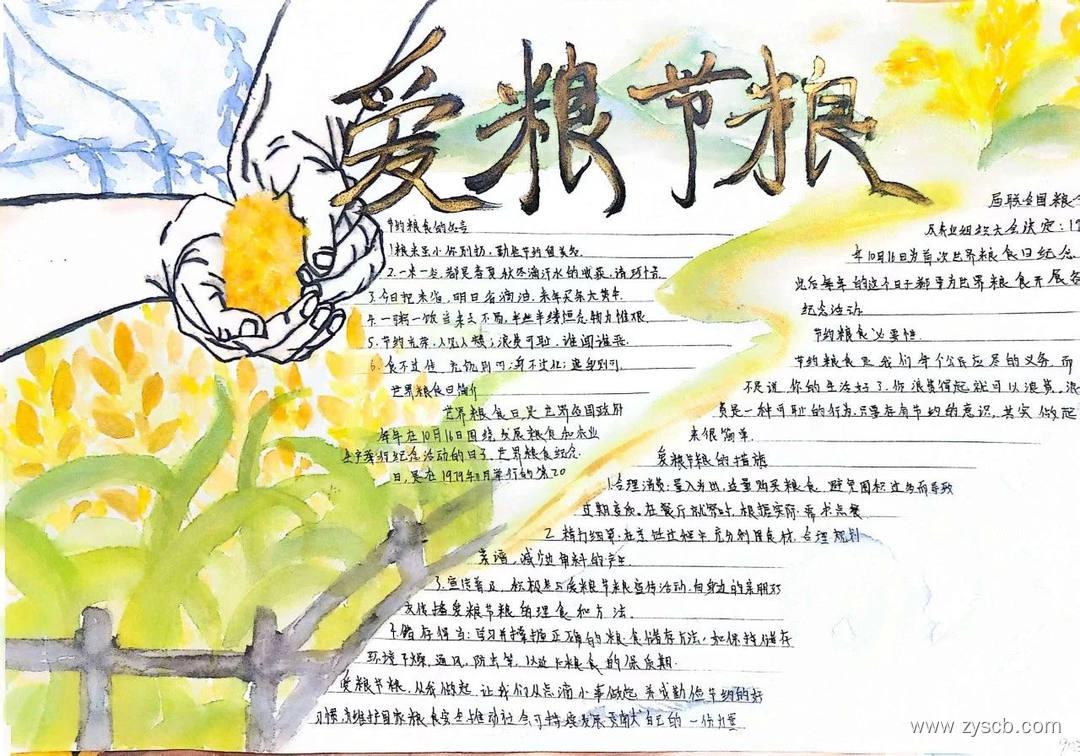 爱粮节粮
节约粮食的名言
1.粮米虽小你别扔,勤俭节约留美名.
2.一米一与,都是春夏秋冬滴汗水的收获,请珍惜.
3.今日把米省,明日省滴油,来年买条大黄牛.
4.一粥一饭当来之不易,半丝半缕恒念物力惟艰.
5.节约光荣,人见人赞;浪费可耻,谁闻谁恶.
6.食不过饱,充饥则可;
世界粮食日简介
世界粮食日是世界各国政府
每年在10月16日围绕发展粮食和农业
生产举行纪念活动的日子.世界粮食纪念
日,是在1979年11月举行的第20
届联合国粮
及农业组织大会决定:19
年10月16日为首次世界粮食日纪念
此后每年的这个日子都要为世界粮食开展各
纪念活动
节约粮食必要性.
节约粮食是我们每个公民应尽的义务,而
不是说,你的生活好了,你浪费得起就可以浪费.浪
费是一种可耻的行为,只要存有节约的意识,其实做起
来很简单.
爱粮节粮的措施
1.合理消费:量入为出,适量购买粮食,避免囤积过多而导致
过期变质。在餐厅就餐时,根据实际需求点餐
2.精打细算:在烹饪过程中充分利用食材,合理规划
菜谱,减少边角料的产生.
3.宣传普及:积极参与爱粮节粮宣传活动,向身边的亲朋好
友传播爱粮节粮的理念和方法.
4.储存得当:学习并掌握正确的粮食储存方法,如保持储存
环境干燥,通风,防虫等,以延长粮食的保质期.
爱粮节粮,从我做起,让我们从点滴小事做起,养成勤俭节约的好
习惯,为维护国家粮食安全,推动社会可持续发展贡献自己的一份力量
www.zyscb.com